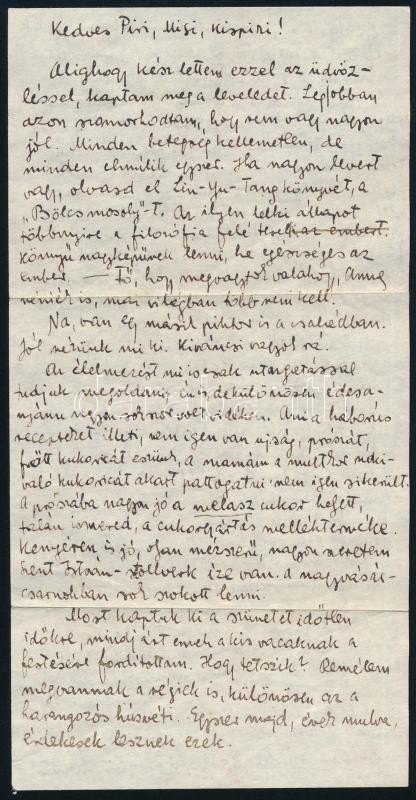 Kedves Piri, Misi, Kispiri!
Alighogy kész lettem ezzel az üdvöz-
léssel, kaptam meg a leveledet. Legjobban
azon szomorkodtam, hogy nem vagy nagyon
jól. Minden betegség kellemetlen, de
minden elmúlik egyszer. Ha nagyon levert
vagy, olvasd el Lin-Yu-Tang könyvét, a
„Bölcs mosoly"-t. Az ilyen lelki állapot
többnyire a filozófia felé terel az embert.
könnyű nagyképűnek lenni, ha egészséges az
ember. — Fő, hogy megvagytok valahogy, annál
is, mai világban több nem kell.
Na, van egy másik piktor is a családban.
Jól nézünk mi ki. Kíváncsi vagyok rá.
Az élelmezést mi csak utángatással
tudjuk megoldani, én is de különösen édesa-
nyám vidéken. Ami a háborús
recepteket illeti, nem igen van ujság, prószát,
főtt kukoricát eszünk, a mamám a multkor
való kukoricát akart pattogatni nem igen sikerült.
A prószába nagyon jó a melasz cukor helyett,
talán ismered, a cukorgyártás mellékterméke.
Kenyéren is jó, olyan mézszerű, nagyon szeretem
Szent István- íze van. A nagyvásár-
csarnokban sok szokott lenni.
Most kaptuk ki a szünetet időtlen
időkre, mindjárt ennek a kis vacaknak a
festésére fordítottam. Hogy tetszik? Remélem
megvannak a régiek is, különösen az a
harangozós húsvéti. Egyszer majd, évek mulva,
érdekesek lesznek ezek.